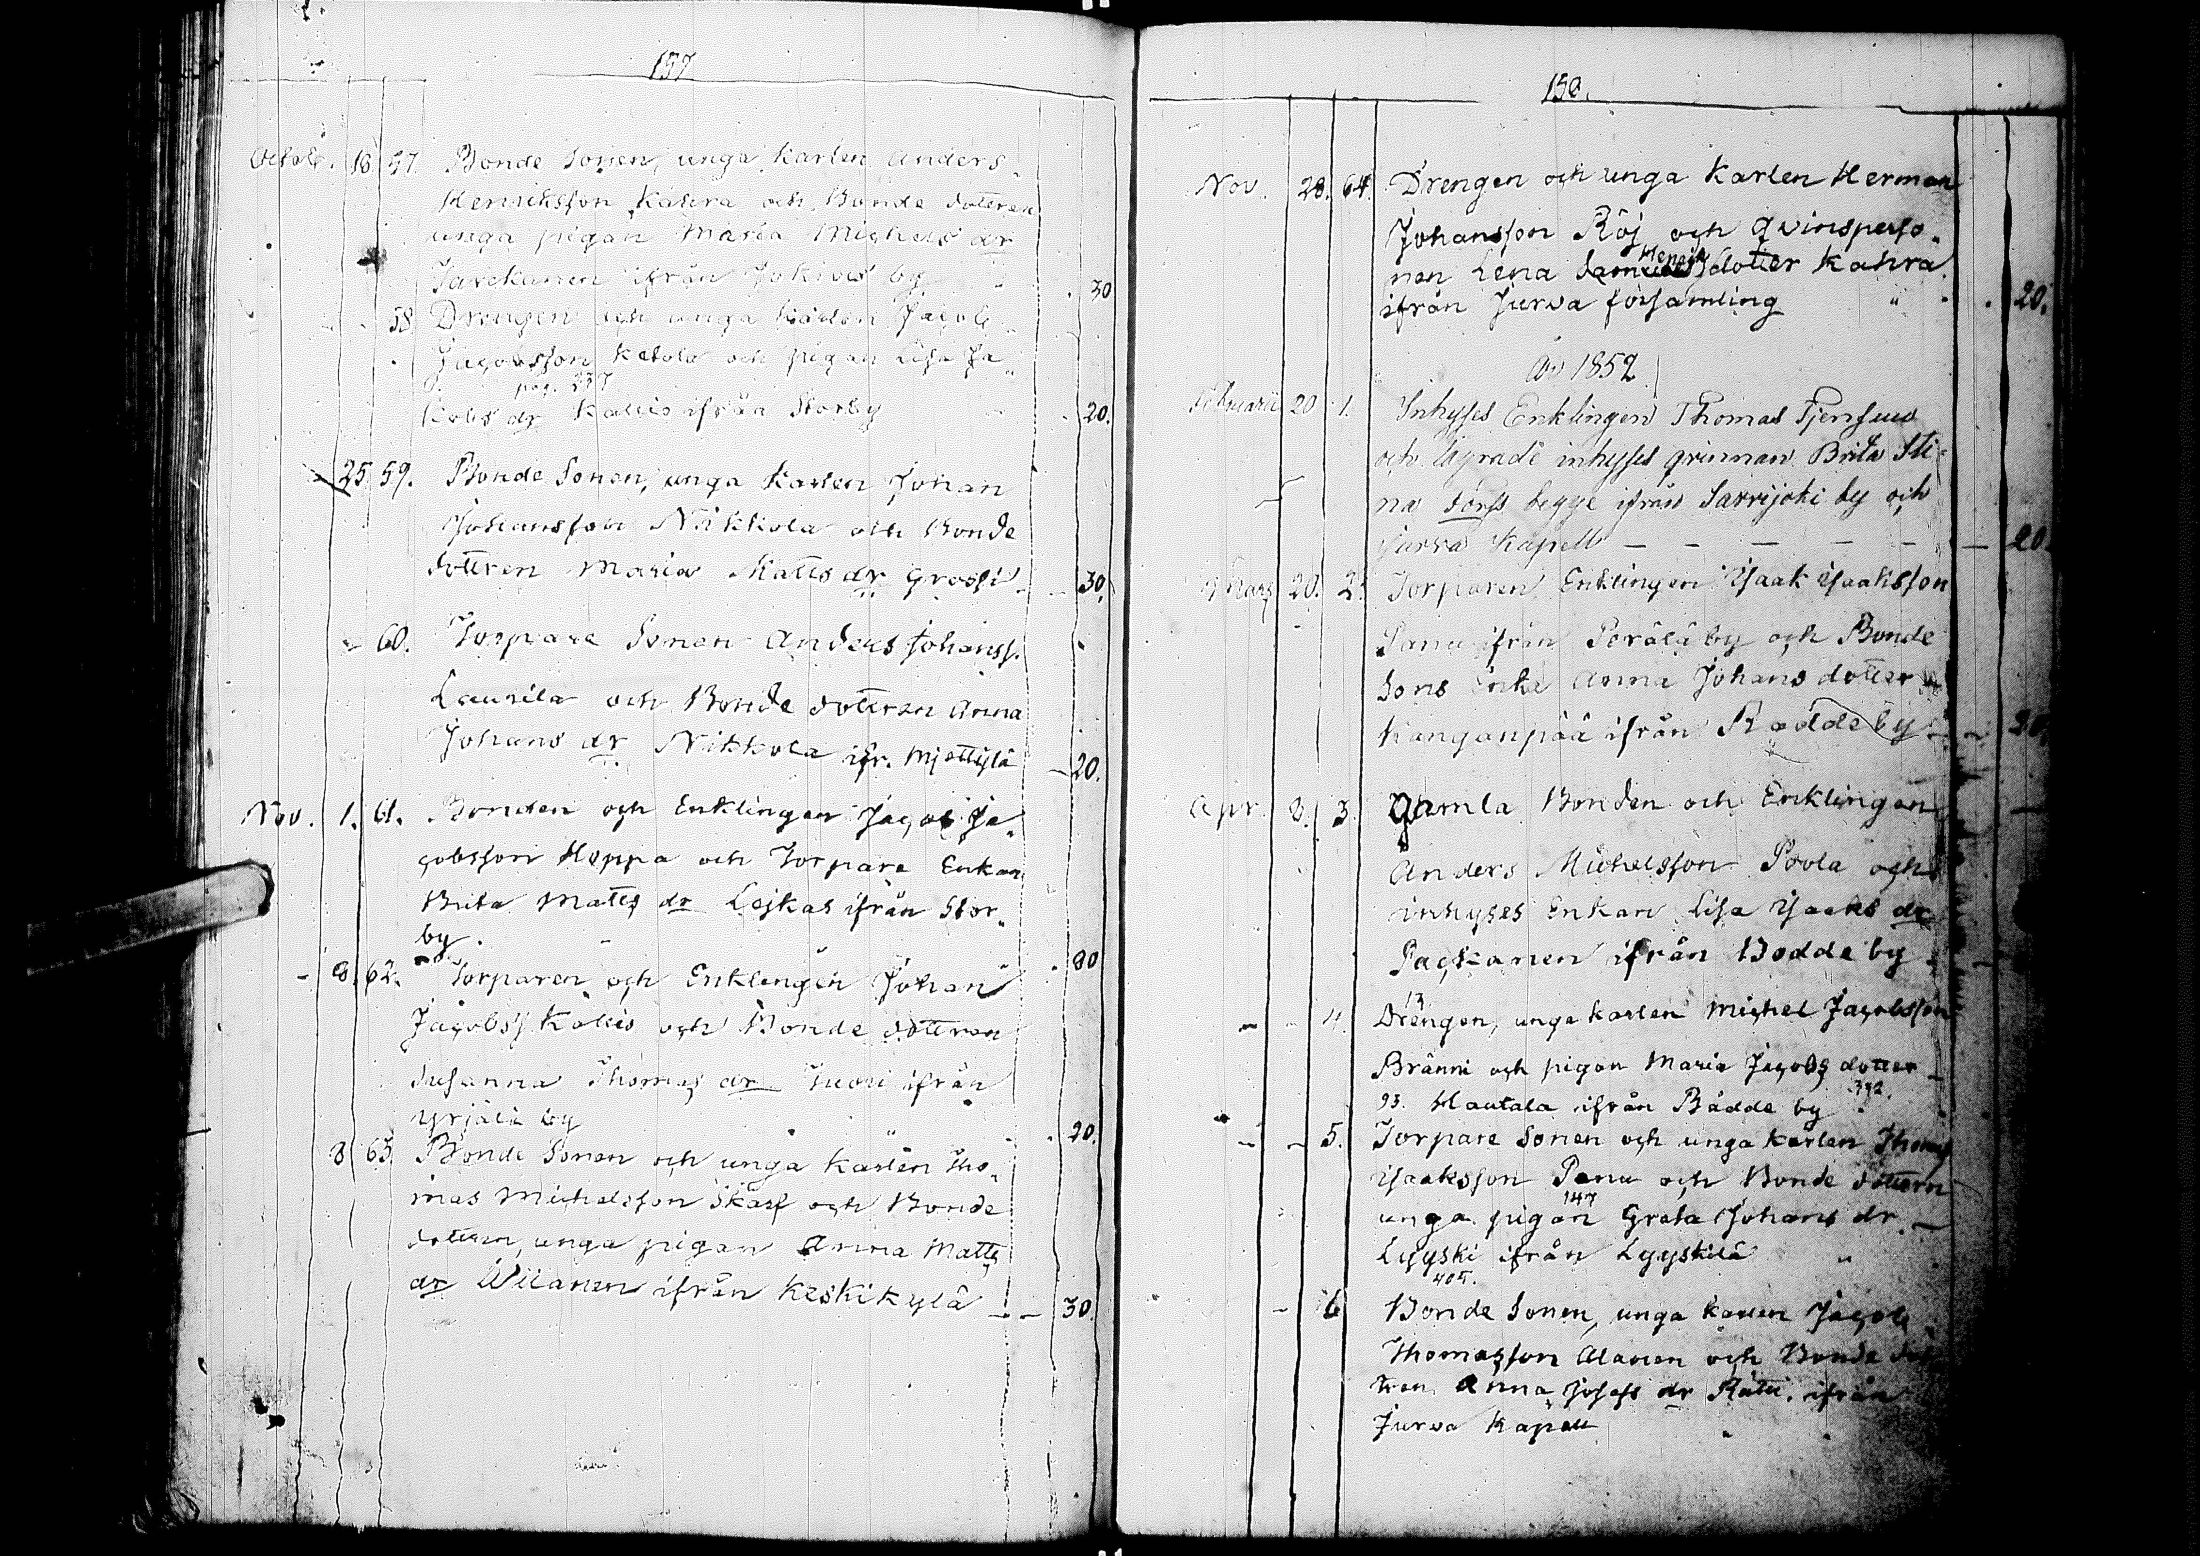 157
Octob. 18. 57. Bonde Sonen, unga Karlen Anders
Henriksson Kahra och Bonde dottren
unga pigan Maria Michels dr
ifrån Jokivis by " . 30
58 Drengen och unga Karlen Jacob
Jacobsson Ketola och pigan Lisa Ja„
pag. 237
kobs dr Kallis ifrån Storby - 20.
25 59. Bonde Sonen, unga Karlen Johan
Johansson Nikkola och Bonde
dottren Maria Matts dr Groosi - 30.
60. Torpare Sonen Anders Johanss.
Laurila och Bonde dottren Anna
Johans dr Nikkola ifr. Mjettylä - 20.
Nov. 1. 61. Bonden och Enklingen Jacob Ja„
cobsson Hoppa och Torpare Enkan
Brita Matts dr Lejkas ifrån Stor„
by. . 80
- 8. 62. Torparen och Enklingen Johan
Jacobss Kallis och Bonde dottren
Susanna Thomas dr Juori ifrån
Yrjälä by . 20.
8 63 Bonde Sonen och unga Karlen Tho„
mas Michelsson Skarf och Bonde
dottren, unga pigan Anna Matts
dr Wilanen ifrån Keskikylä - - 30.
158.
Nov. 28. 64. Drengen och unga Karlen Herman
Johansson Röj och Qvinsperso„
Henrik
nen Lena Samuelsdotter Kahra
ifrån Jurva församling " . 20.
År 1852
Februarii 20 1. Inhyses Enklingen Thomas Tjensuu
och inhyses qvinnan Brita Sti„
na Torss begge ifrån Sarvijoki by och
Jurva Kapell - - - - - - 20.
Mars 20. 2. Torparen Enklingen Isaak Isaaksson
Panu ifrån Peräläby och Bonde
Sons Enka Anna Johans dotter
Kanganpää ifrån Rodde by - - 20.
Apr. 3. 3. Gamla Bonden och Enklingen
Anders Michelsson Poola och
inhyses Enkan Lisa Isaaks dr
Packanen ifrån Bodde by
13
- - 4. Drengen, unga karlen Michel Jacobsson
Bränni och pigan Maria Jacobs dotter -
93. Hautala ifrån Bädde by 392.
- - 5. Torpare Sonen och unga karlen Thomas
Isaaksson Panu och Bonde dottern
147
unga pigan Greta Johans dr -
Lyyski ifrån Lyyskilä "
405.
- 6 Bonde Sonen, unga karlen Jacob
Thomasson Alanen och Bonde dot
tren Anna Josefs dr Rätti ifrån
Jurva Kapell